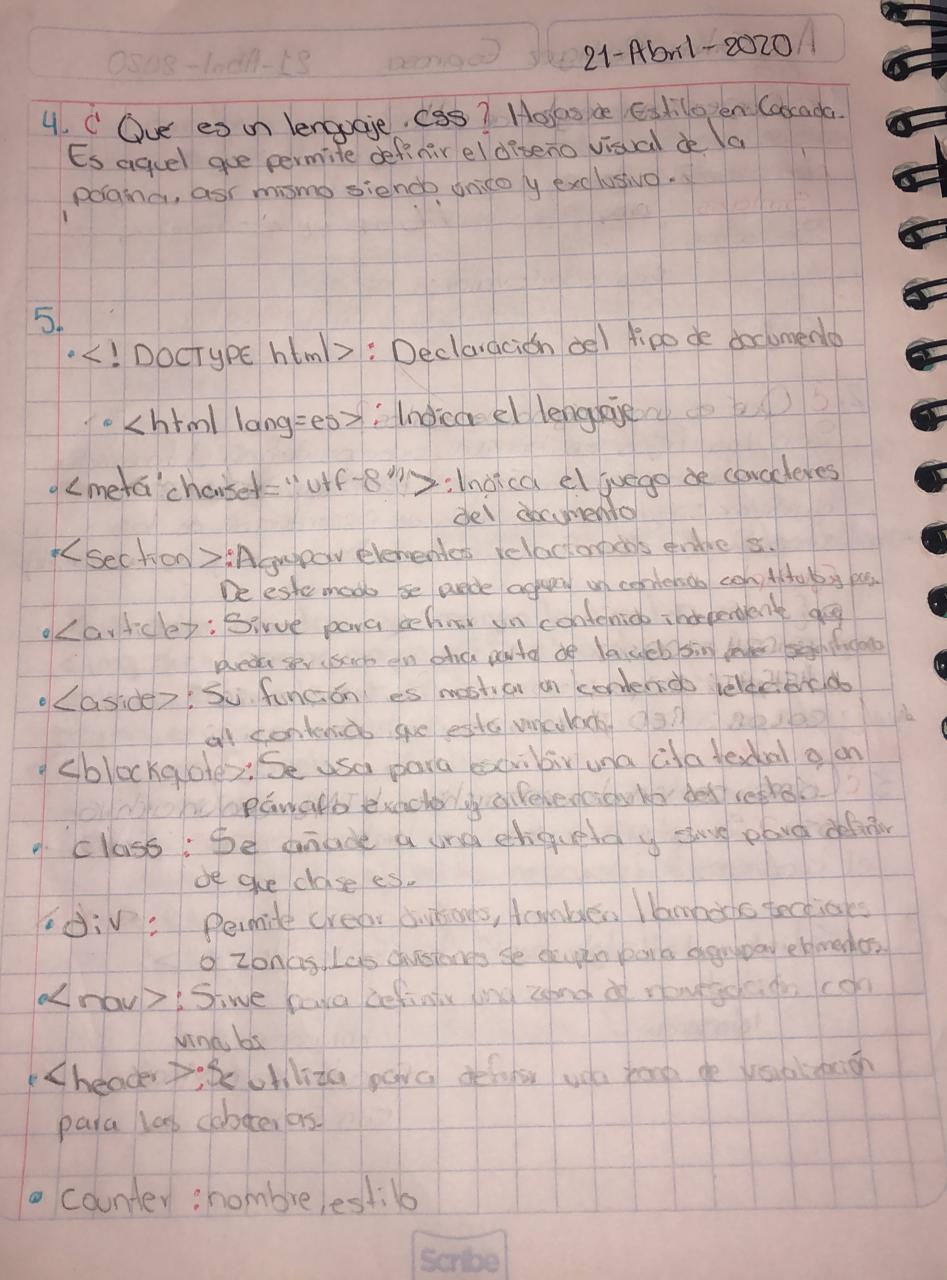 21-Abril-2020
4. ¿ Que es un lenguaje .css? Hojas de Estilo en Cascada.
Es aquel que permite definir el diseño visual de la
página, asi mismo siendo único y exclusivo.
5.
• <! DOCTYPE html>: Declaración del tipo de documento
• <html lang=es>: Indica el lenguaje
• <meta charset="utf-8">: Indica el juego de caracteres
del documento
• <section>: Agrupar elementos relacionados entre si.
De este modo se puede agrupar un contenido con titulo y
• <article>: Sirve para definir un contenido independiente que
pueda ser usado en otra parte de la web sin significado
• <aside>: Su función es mostrar un contenido relacionado
al contenido que está vinculado.
• <blockquote>: Se usa para escribir una cita textual o un
párrafo exacto y diferenciarlo del resto.
• class : Se añade a una etiqueta y sirve para definir
de que clase es.
• div : Permite crear divisiones, también llamadas secciones
o zonas. Las divisiones se ocupan para agrupar elementos.
• <nav>: Sirve para definir una zona de navegación con
vinculos
• <header>: Se utiliza para definir una zona de visualización
para las cabeceras.
• counter : nombre, estilo
Scribe